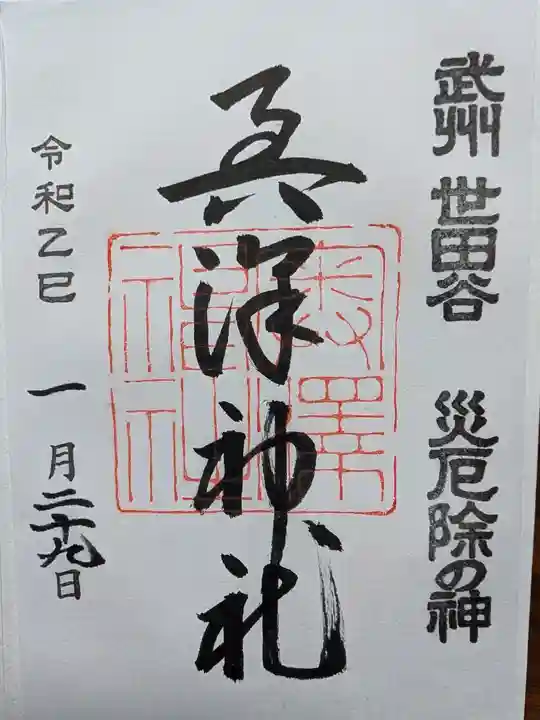 武州 世田谷 災厄除の神
奥澤神社
令和乙巳 一月二十九日